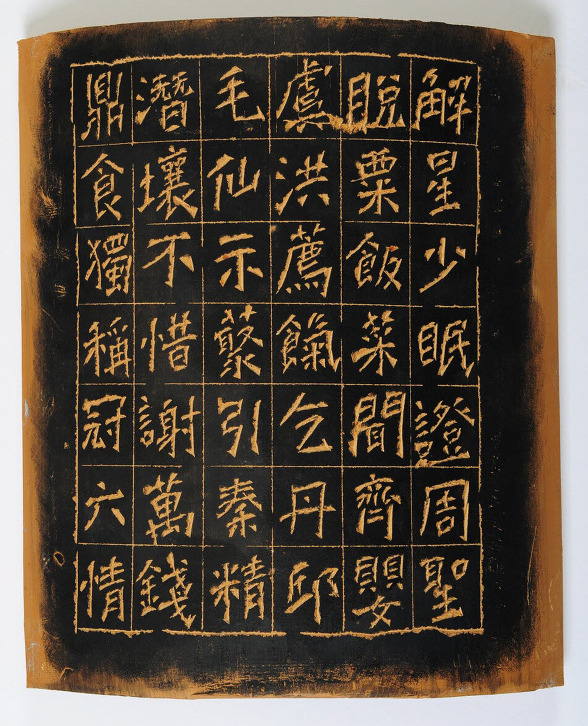 解星少眠證周聖
脫粟飯菜聞齊嬰
虞洪薦餼乞丹邱
毛仙示藂引秦精
潛壤不惜謝萬錢
鼎食獨稱冠六情